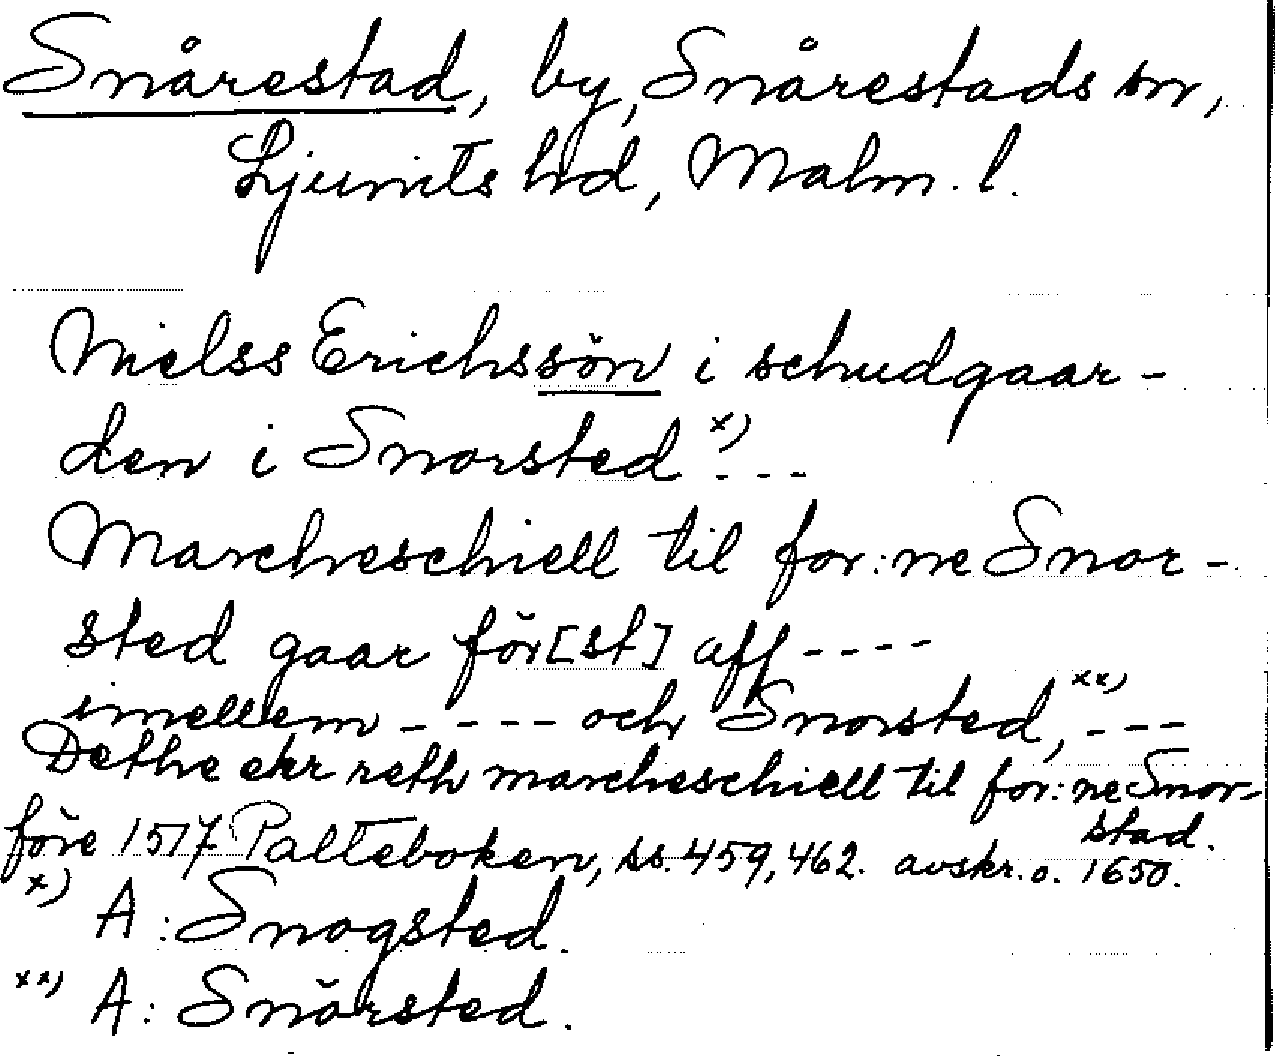 Snårestad, by, Snårestads sn,
Ljunits hd, Malm. l.
Nielss Erichssön i schudgaar-
den i Snorsted x) - - -
Marcheschiell til for:ne Snor-
sted gaar för[st] aff - - - -
imellem - - - - och Snorsted, xx) - - -
Dethe ehr reth marcheschiell til for:ne Snor-
stad.
före 1517 Palteboken, ss. 459, 462. avskr. o. 1650.
x) A: Snogsted.
xx) A: Snörsted.